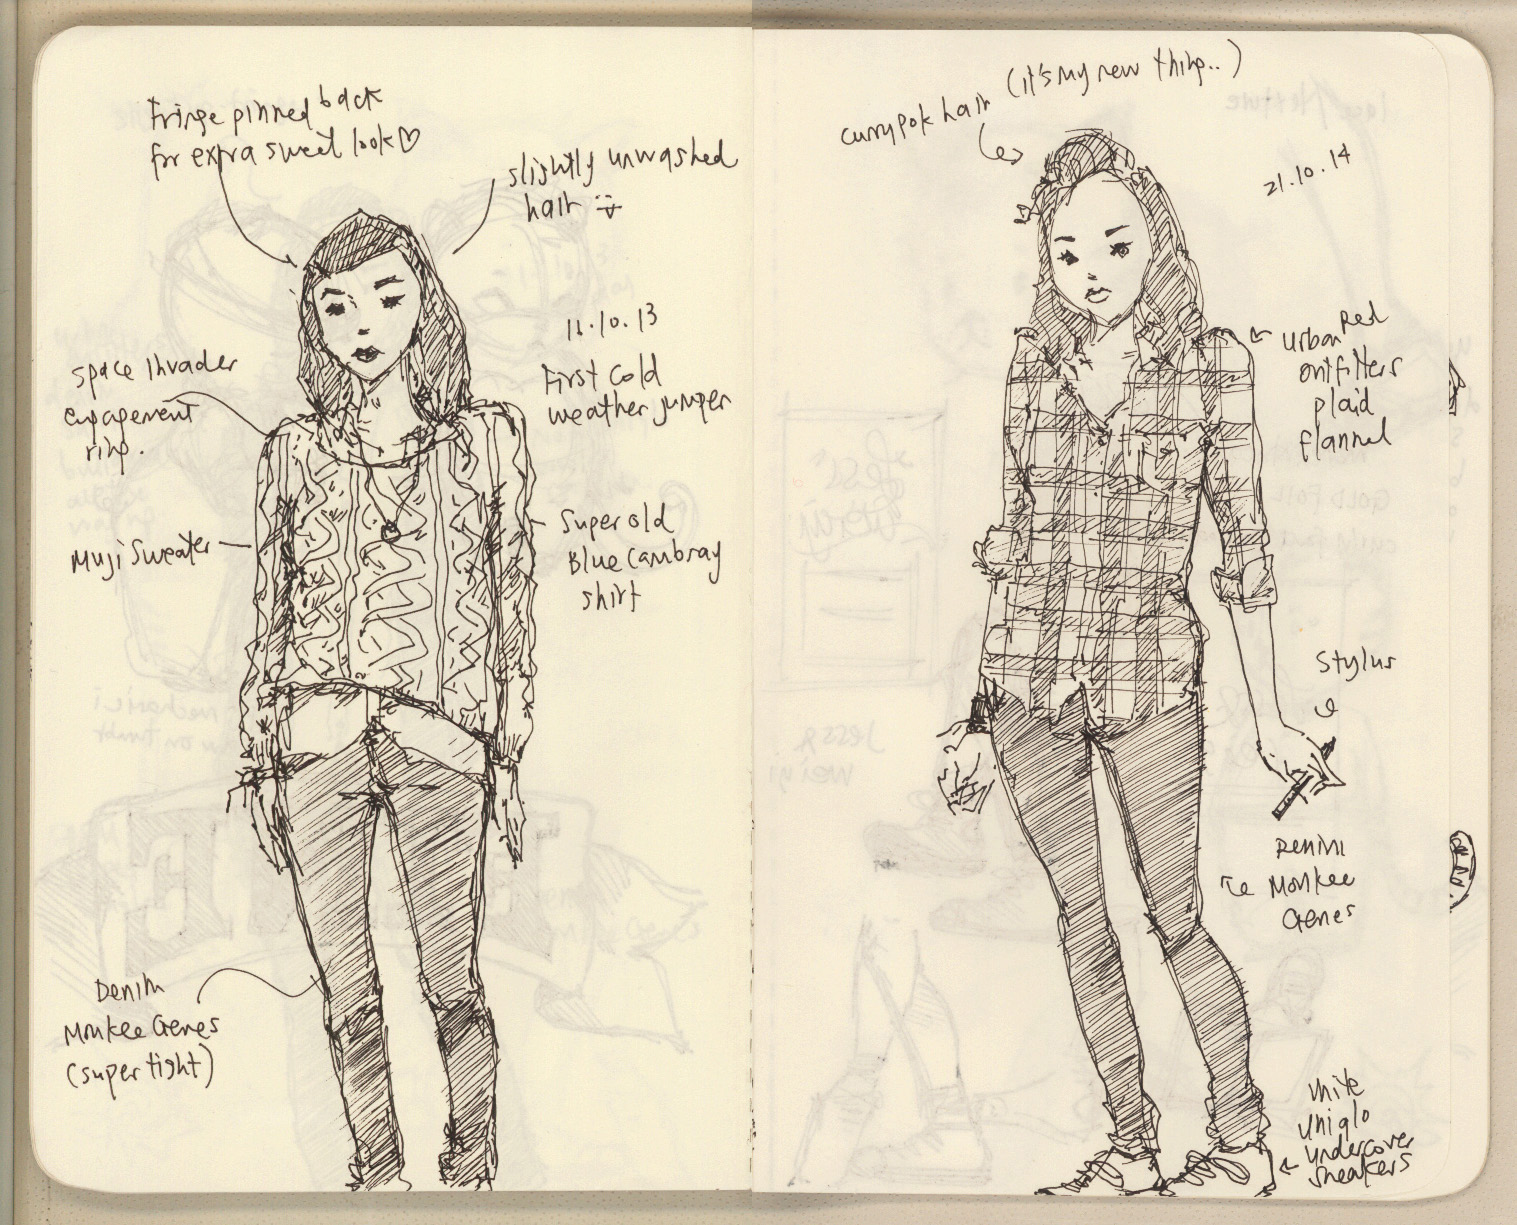 Fringe pinned back
for extra sweet look♡
slightly unwashed
hair
11.10.13
First cold
weather jumper
space invader
engagement
ring.
Muji Sweater
Super old
Blue Cambray
shirt
Denim
Monkee Genes
(super tight)
(it's my new thing..)
currypok hair
21.10.14
Red
Urban
outfitters
plaid
flannel
Stylus
Denim
Monkee
Genes
White
Uniqlo
undercover
sneakers